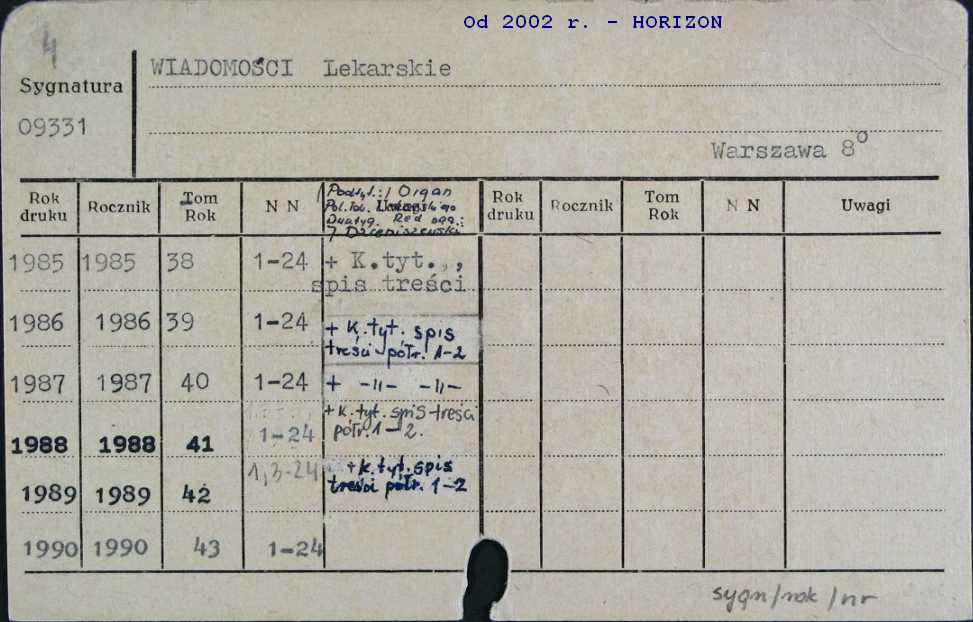 Od 2002 r. - HORIZON
4
WIADOMOŚCI Lekarskie
Sygnatura
09331
Warszawa 8°
Rok druku Rocznik Tom Rok N N Rok druku Rocznik Tom Rok N N Uwagi
Podtyt.: / Organ
Pol. Tow. Lekarskiego
Dwutyg. Red odp.:
J Dzieniszewski
1985 1985 38 1-24 + K.tyt.,,
spis treści
1986 1986 39 1-24 + K. tyt. spis
treści półr. 1-2
1987 1987 40 1-24 + -\\- -\\-
+ K. tyt. spis treści
1988 1988 41 1-24 półr. 1-2.
1,3-24 + K. tyt. spis
1989 1989 42 treści półr. 1-2
1990 1990 43 1-24
sygn/rok/nr